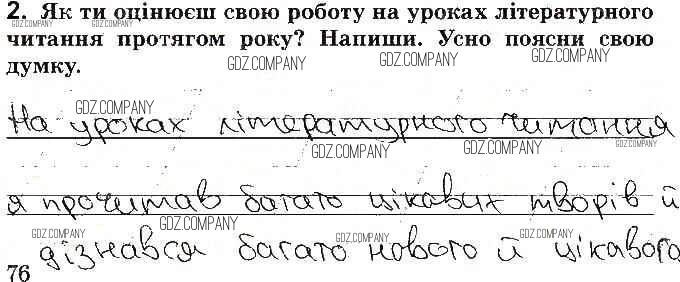 2. Як ти оцінюєш свою роботу на уроках літературного
читання протягом року? Напиши. Усно поясни свою
думку.
GDZ.COMPANY GDZ.COMPANY GDZ.COMPANY
GDZ.COMPANY GDZ.COMPANY
На уроках літературного читання
GDZ.COMPANY GDZ.COMPANY
я прочитав багато цікавих творів й
GDZ.COMPANY GDZ.COMPANY GDZ.COMPANY
дізнався багато нового й цікавого
76